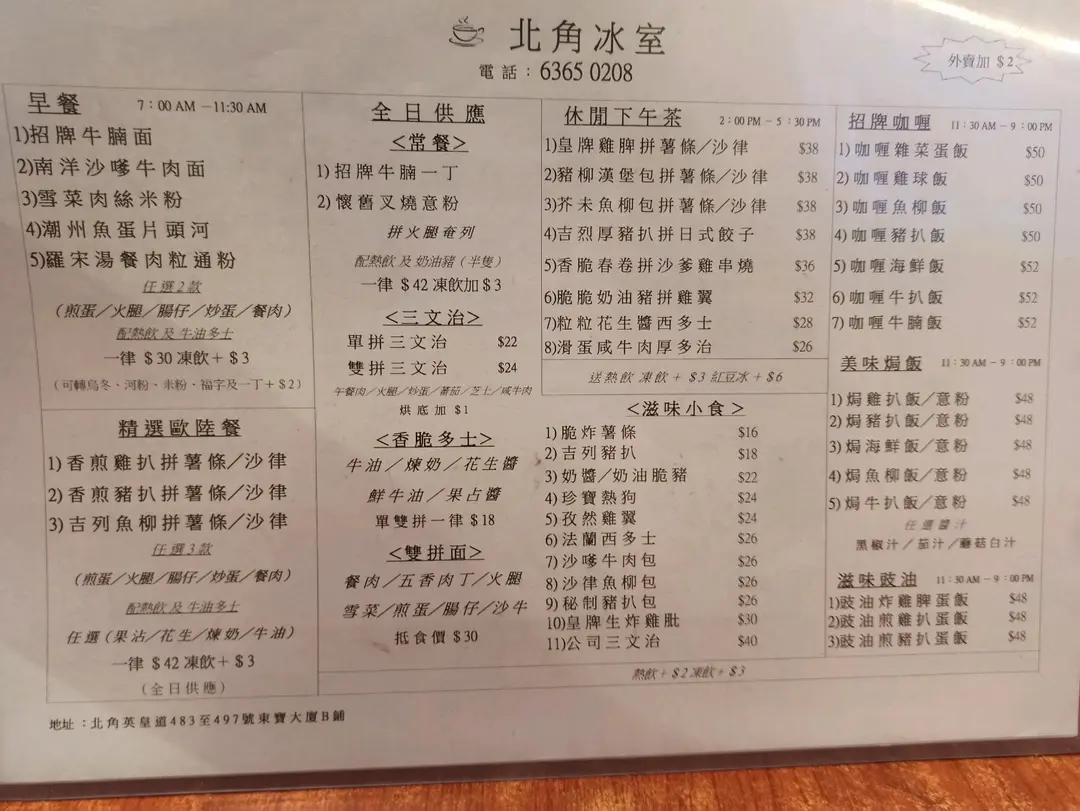 北角冰室
電話：6365 0208
外賣加 $2
早餐 7：00 AM －11:30 AM
1)招牌牛腩面
2)南洋沙嗲牛肉面
3)雪菜肉絲米粉
4)潮州魚蛋片頭河
5)羅宋湯餐肉粒通粉
任選2款
（煎蛋／火腿／腸仔／炒蛋／餐肉）
配熱飲及牛油多士
一律 $30 凍飲＋$3
（可轉烏冬、河粉、米粉、福字及一丁＋$2）
精選歐陸餐
1)香煎雞扒拼薯條／沙律
2)香煎豬扒拼薯條／沙律
3)吉列魚柳拼薯條／沙律
任選3款
（煎蛋／火腿／腸仔／炒蛋／餐肉）
配熱飲及牛油多士
任選（果沾／花生／煉奶／牛油）
一律 $42 凍飲＋$3
（全日供應）
全日供應
<常餐>
1)招牌牛腩一丁
2)懷舊叉燒意粉
拼火腿奄列
配熱飲及奶油豬（半隻）
一律 $42 凍飲加$3
<三文治>
單拼三文治 $22
雙拼三文治 $24
午餐肉／火腿／炒蛋／蕃茄／芝士／咸牛肉
烘底加 $1
<香脆多士>
牛油／煉奶／花生醬
鮮牛油／果占醬
單雙拼一律 $18
<雙拼面>
餐肉／五香肉丁／火腿
雪菜／煎蛋／腸仔／沙牛
抵食價 $30
休閒下午茶 2：00 PM－5：30 PM
1)皇牌雞脾拼薯條／沙律 $38
2)豬柳漢堡包拼薯條／沙律 $38
3)芥末魚柳包拼薯條／沙律 $38
4)吉烈厚豬扒拼日式餃子 $38
5)香脆春卷拼沙爹雞串燒 $36
6)脆脆奶油豬拼雞翼 $32
7)粒粒花生醬西多士 $28
8)滑蛋咸牛肉厚多治 $26
送熱飲 凍飲＋$3 紅豆冰＋$6
<滋味小食>
1)脆炸薯條 $16
2)吉列豬扒 $18
3)奶醬／奶油脆豬 $22
4)珍寶熱狗 $24
5)孜然雞翼 $24
6)法蘭西多士 $26
7)沙嗲牛肉包 $26
8)沙律魚柳包 $26
9)秘制豬扒包 $26
10)皇牌生炸雞肶 $30
11)公司三文治 $40
熱飲＋$2 凍飲＋$3
招牌咖喱 11：30 AM－9：00 PM
1)咖喱雜菜蛋飯 $50
2)咖喱雞球飯 $50
3)咖喱魚柳飯 $50
4)咖喱豬扒飯 $50
5)咖喱海鮮飯 $52
6)咖喱牛扒飯 $52
7)咖喱牛腩飯 $52
美味焗飯 11：30 AM－9：00 PM
1)焗雞扒飯／意粉 $48
2)焗豬扒飯／意粉 $48
3)焗海鮮飯／意粉 $48
4)焗魚柳飯／意粉 $48
5)焗牛扒飯／意粉 $48
任選醬汁
黑椒汁／茄汁／蘑菇白汁
滋味豉油 11：30 AM－9：00 PM
1)豉油炸雞脾蛋飯 $48
2)豉油煎雞扒蛋飯 $48
3)豉油煎豬扒蛋飯 $48
地址：北角英皇道483至497號東寶大廈B鋪